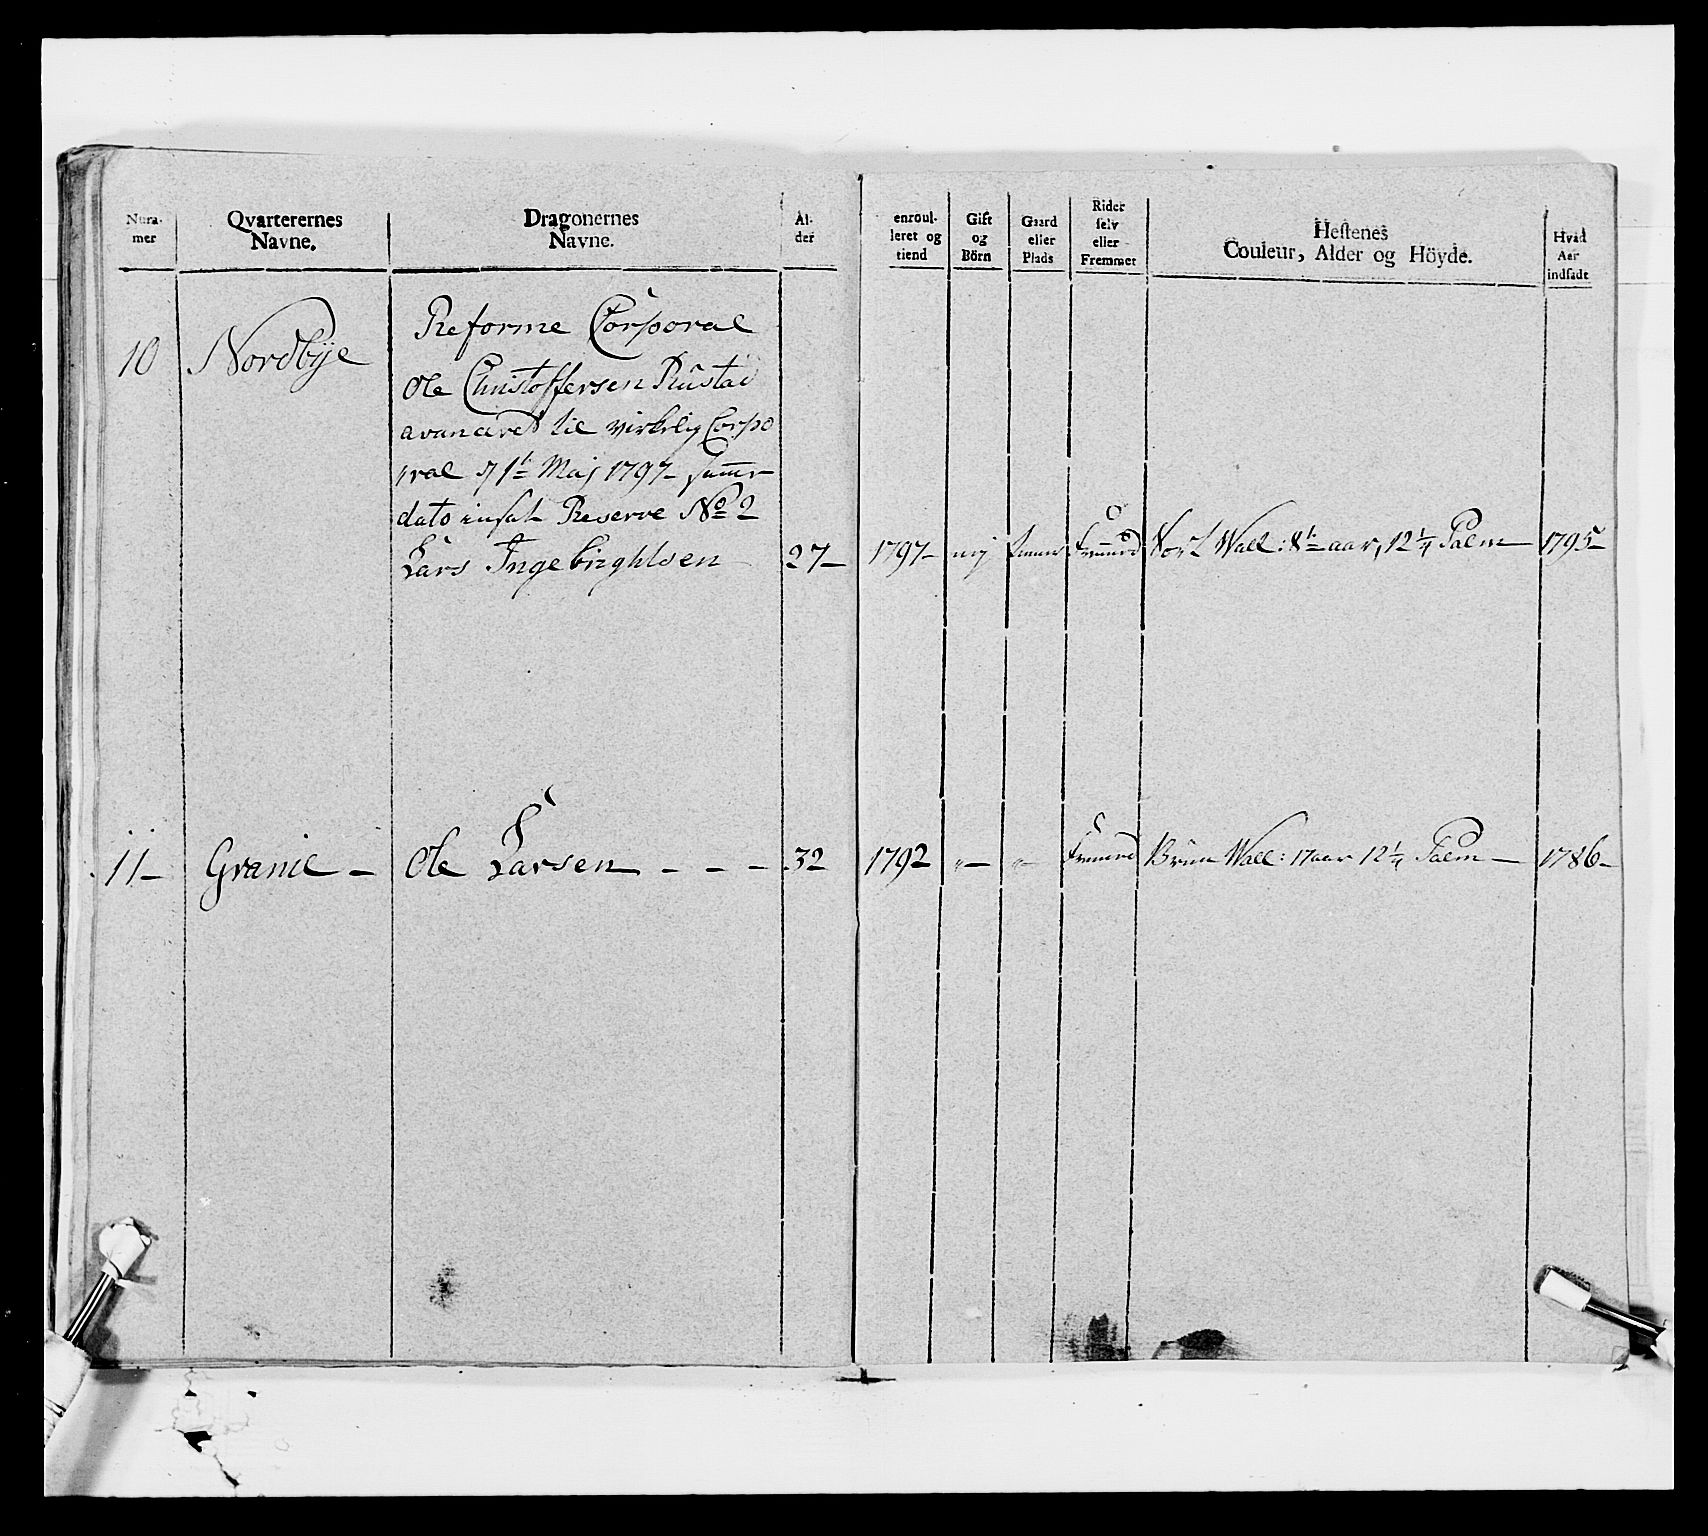 Num-
mer
Qvarterernes
Navne.
Dragonernes
Navne.
Al-
der
enroul-
leret og
tiend
Gift
og
Börn
Gaard
eller
Plads
Rider
selv
eller
Fremmet
Hestenes
Couleur, Alder og Höyde.
Hvad
Aar
indsadt
10 Nordbÿe Reforme Corporal
Ole Christoffersen Rustad
avanceret til virkelig Corpo
ral d 1te Maj 1797 samme
dato insat Reserve No 2
Lars Ingebrigtsen 27 — 1797 — nej Fremed Sort Wall: 8te aar, 12 1/4 Palm — 1795 —
11 — Granie — Ole Larsen - - - 32 1792 „ — „ Fremed Brun Wall: 17 aar 12 1/4 Palm — 1786 —